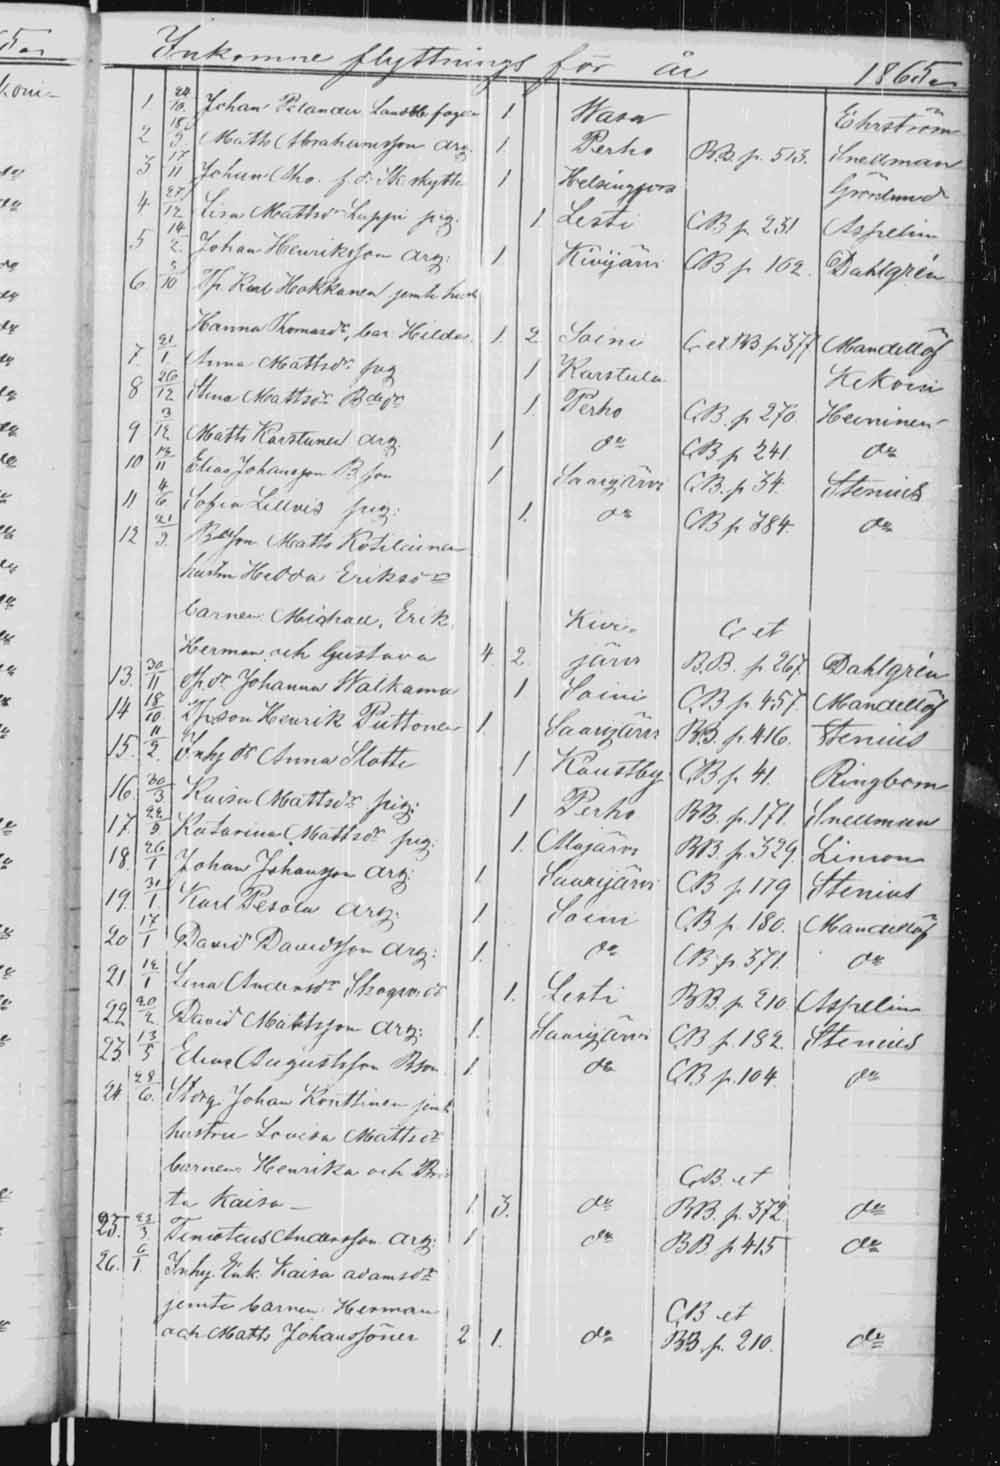 Inkomne flyttnings för år 1865
1 24/10 Johan Pelander 1 Wasa Ehrström
2 18/3 Matts Abrahamsson arg. 1. Perho BB p. 513. Snellman
3 17/11 Johan f.d. Sk skytte 1 Helsingfors Grönlund
4 27/12 Lisa Mattsdr Lappi pig. 1 Lesti CB p 231 Aspelin
5 14/2 Johan Henriksson arg: 1 Kivijärvi CB p 162. Dahlgrén
6 3/10 Tp. Karl Hokkanen jemte hustr
Hanna Thomasdr, bar. Hilda 1. 2 Soini C et BB p 377 Mandellöf
7. 21/1 Anna Mattsdr pig 1 Karstula Kekoni
8 26/12 Stina Mattsdr Bdedr 1. Perho CB. p 270. Heininen
9 3/12 Matts Karstunen arg. 1 do CB p 241 do
10 12/11 Elias Johansson B. son 1 Saarijärvi CB. p 34. Stenius
11 4/6 Sofia Lillvis pig: 1. do CB p 384. do
12 21/3 Bdeson Matts Kotilainen
hustru Hedda Eriksdr
barnen Michael, Erik,
Herman och Gustava 4. 2 Kivijärvi C et B.B. p 267. Dahlgrén
13. 30/11 Tp.dr Johanna Walkama 1 Soini CB p. 457. Mandellöf
14 18/10 Tp.son Henrik Puttonen 1. Saarijärvi BB p. 416. Stenius
15. 11/2. Inhy dr Anna Slotte 1 Kaustby CB p. 41. Ringbom
16. 30/3 Kaisa Mattsdr pig: 1 Perho BB. p. 171. Snellman
17. 22/9 Katarina Mattsdr pig: 1. Alajärvi BB. p. 329. Limon
18. 26/1 Johan Johansson arg: 1. Saarijärvi CB p 179 Stenius
19. 31/1 Karl Pesola arg: 1 Soini CB p. 180. Mandellöf
20 17/1 David Davidsson arg: 1. do CB p. 371. do
21 12/1 Lena Andersdr 1. Lesti BB. p 210. Aspelin
22 20/2 David Mattsson arg: 1. Saarijärvi CB p. 182. Stenius
23 13/5 Elias Augustsson Bson 1 do CB p. 104. do
24 28/6. Storg Johan Konttinen jemte
hustru Lovisa Mattsdr
barnen Henrika och Bri-
ta Kaisa— 1. 3. do CB et BB. p. 372. do
25. 22/3 Timoteus Andersson arg: 1 do BB p 415 do
26. 6/1 Inhy. Enk. Kaisa adamsdr
jemte barnen Herman
och Matts Johanssöner 2 1. do CB et BB. p. 210. do